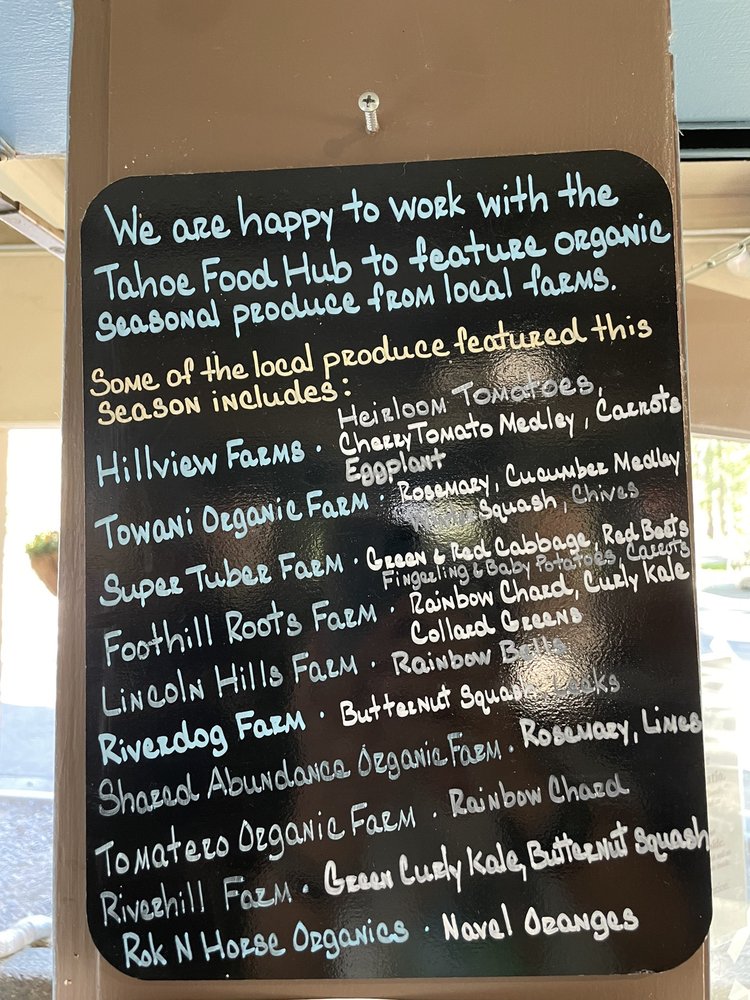 We are happy to work with the
Tahoe Food Hub to feature organic
seasonal produce from local farms.
Some of the local produce featured this
season includes:
Hillview Farms · Heirloom Tomatoes,
Cherry Tomato Medley, Carrots
Eggplant
Towani Organic Farm · Rosemary, Cucumber Medley
Squash, Chives
Super Tuber Farm · Green & Red Cabbage, Red Beets
Fingerling & Baby Potatoes, Carrots
Foothill Roots Farm · Rainbow Chard, Curly Kale
Collard Greens
Lincoln Hills Farm · Rainbow Bells
Riverdog Farm · Butternut Squash, Leaks
Shared Abundance Organic Farm · Rosemary, Limes
Tomatero Organic Farm · Rainbow Chard
Riverhill Farm · Green Curly Kale, Butternut Squash
Rok N Horse Organics · Navel Oranges